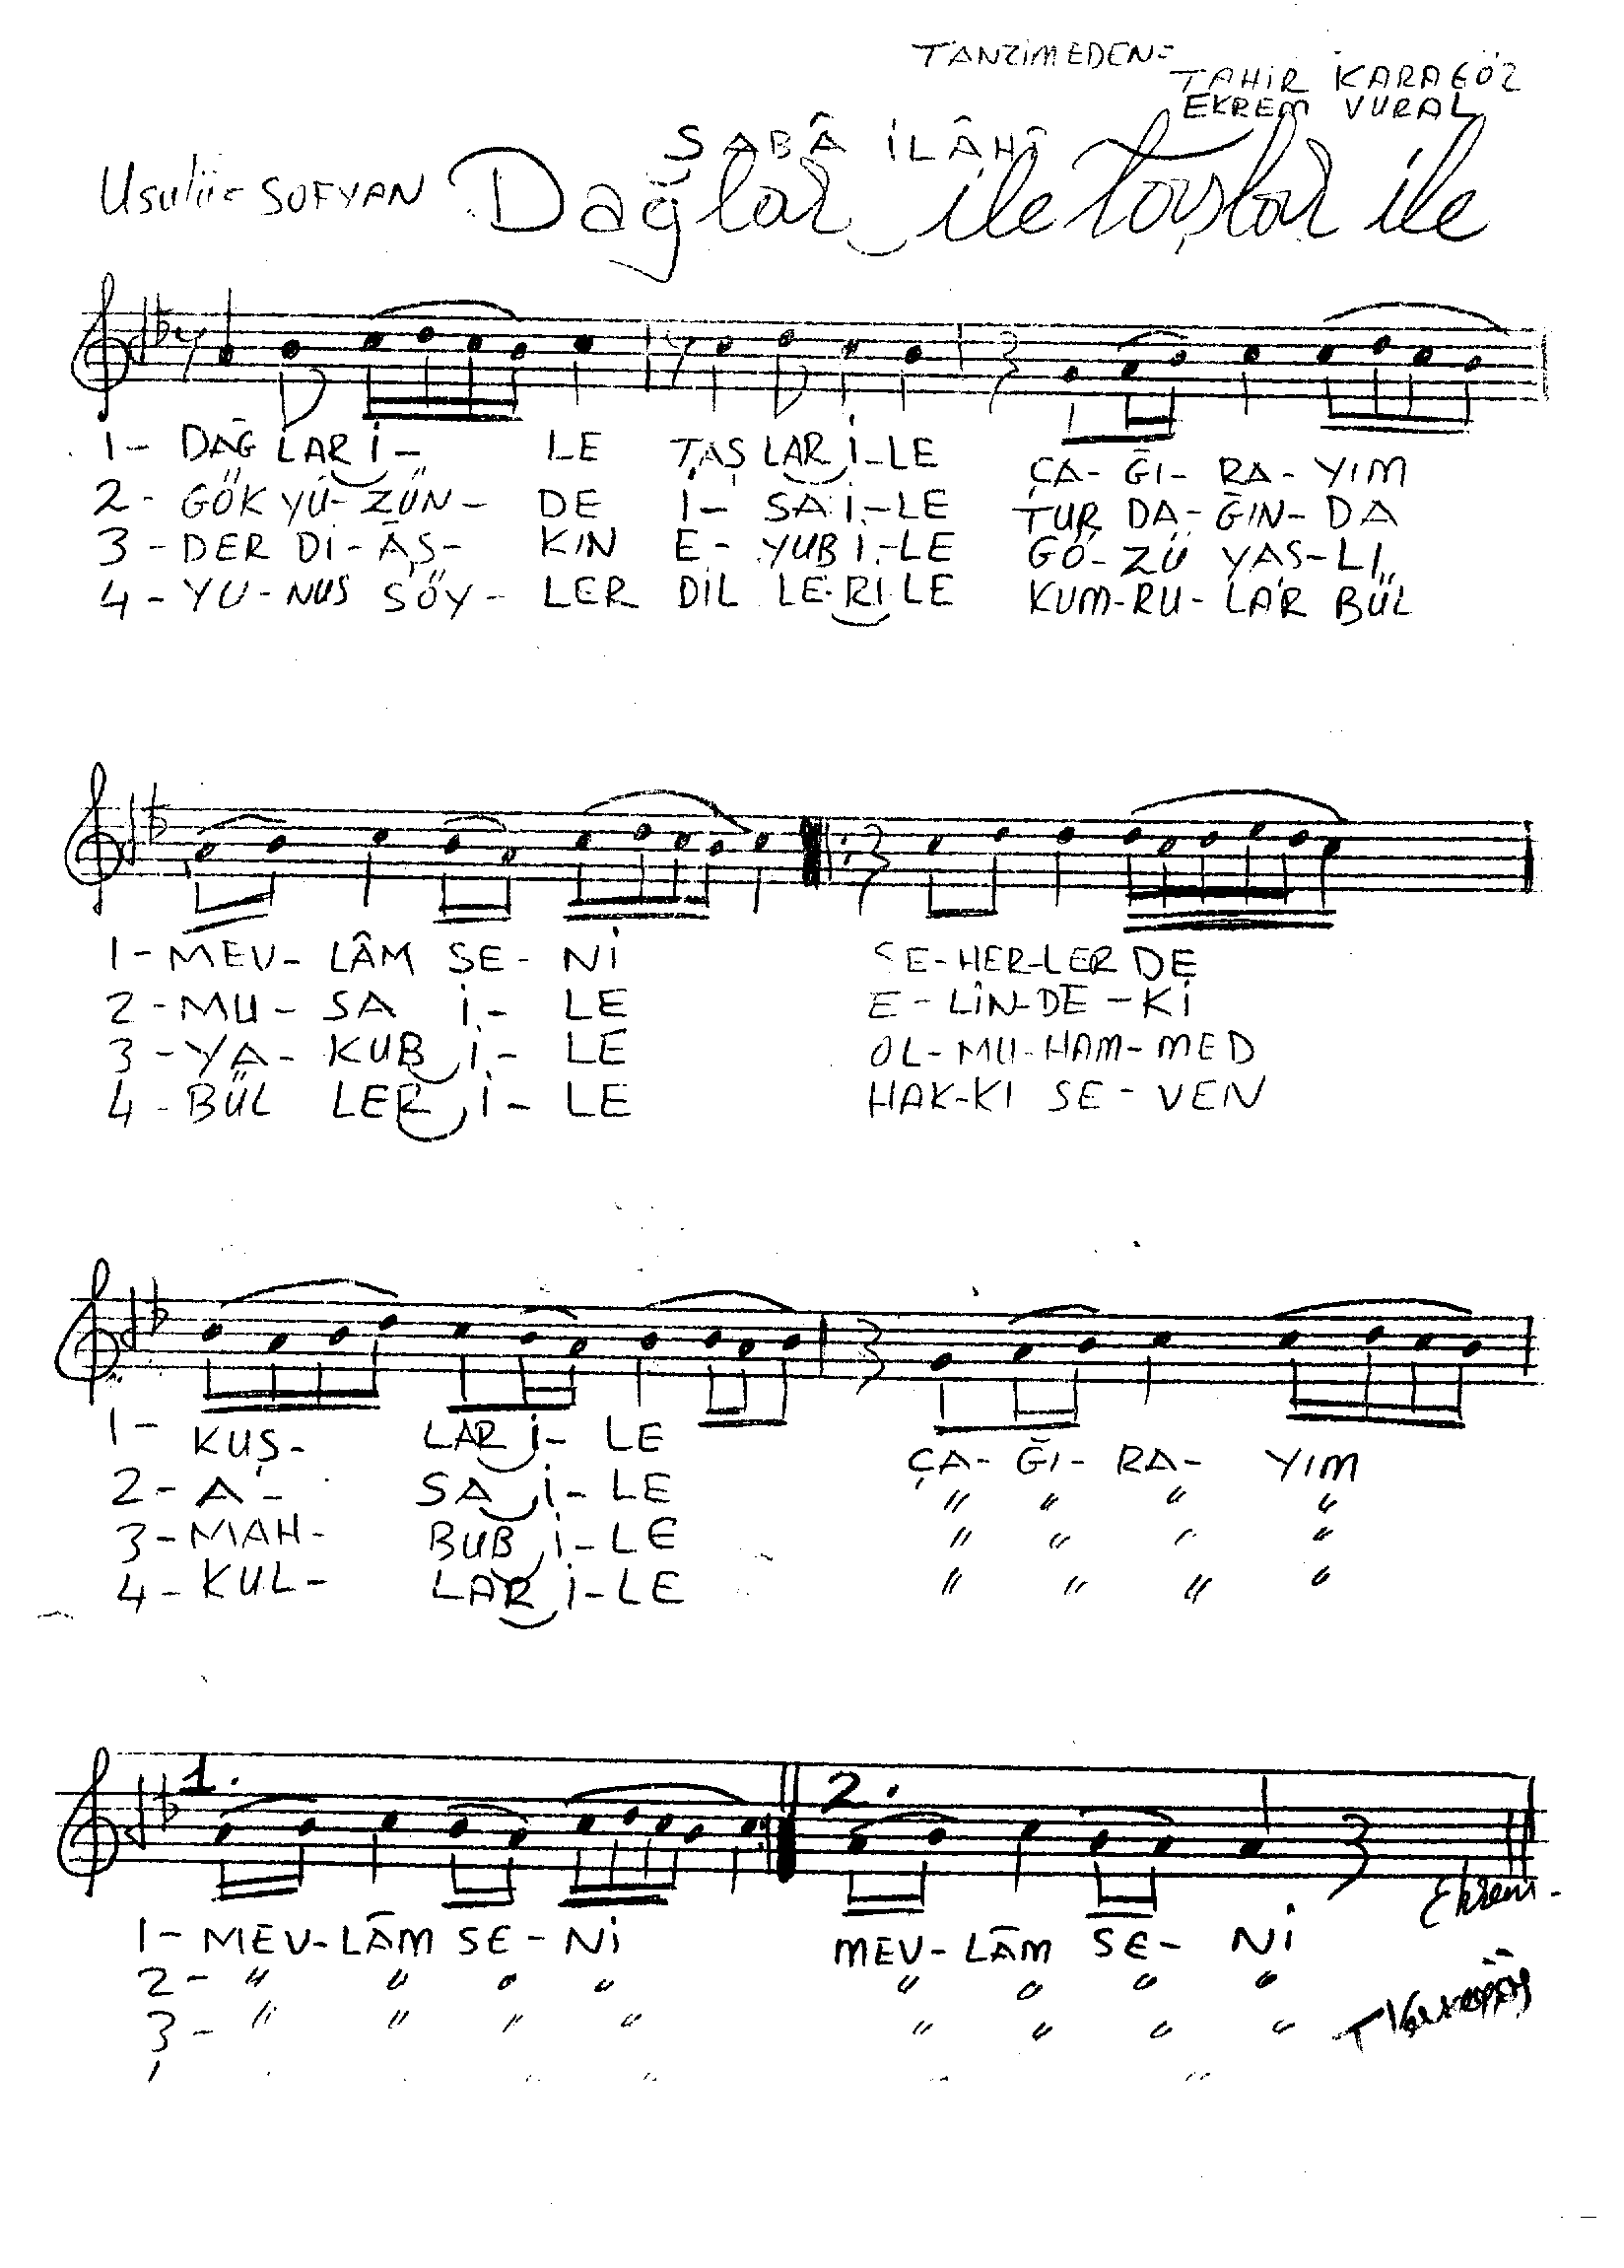 TANZİMEDEN=
TAHİR KARAGÖZ
EKREM VURAL
SABÂ İLÂHİ
Usulü= SOFYAN Dağlar ile taşlar ile
1- DAĞ LAR İ- LE TAŞ LAR İ-LE ÇA- ĞI- RA- YIM
2- GÖK YÜ- ZÜN- DE İ- SA İ-LE TUR DA- ĞIN- DA
3- DER Dİ- AŞ- KIN E- YUB İ-LE GÖ- ZÜ YAŞ-LI
4- YU- NUS SÖY- LER DİL LE-Rİ LE KUM-RU- LAR BÜL
1- MEV- LÂM SE- Nİ SE-HER-LER DE
2- MU- SA İ- LE E-LİN-DE-Kİ
3- YA- KUB İ- LE OL-MU-HAM-MED
4- BÜL LER İ- LE HAK-KI SE-VEN
1- KUŞ- LAR İ- LE ÇA- ĞI- RA- YIM
2- A- SA İ- LE " " " "
3- MAH- BUB İ- LE " " " "
4- KUL- LAR İ- LE " " " "
1. 2.
1- MEV-LÂM SE- Nİ MEV- LÂM SE- Nİ
2- " " " " " " " "
3- " " " " " " " "
Ekrem
T Karagöz